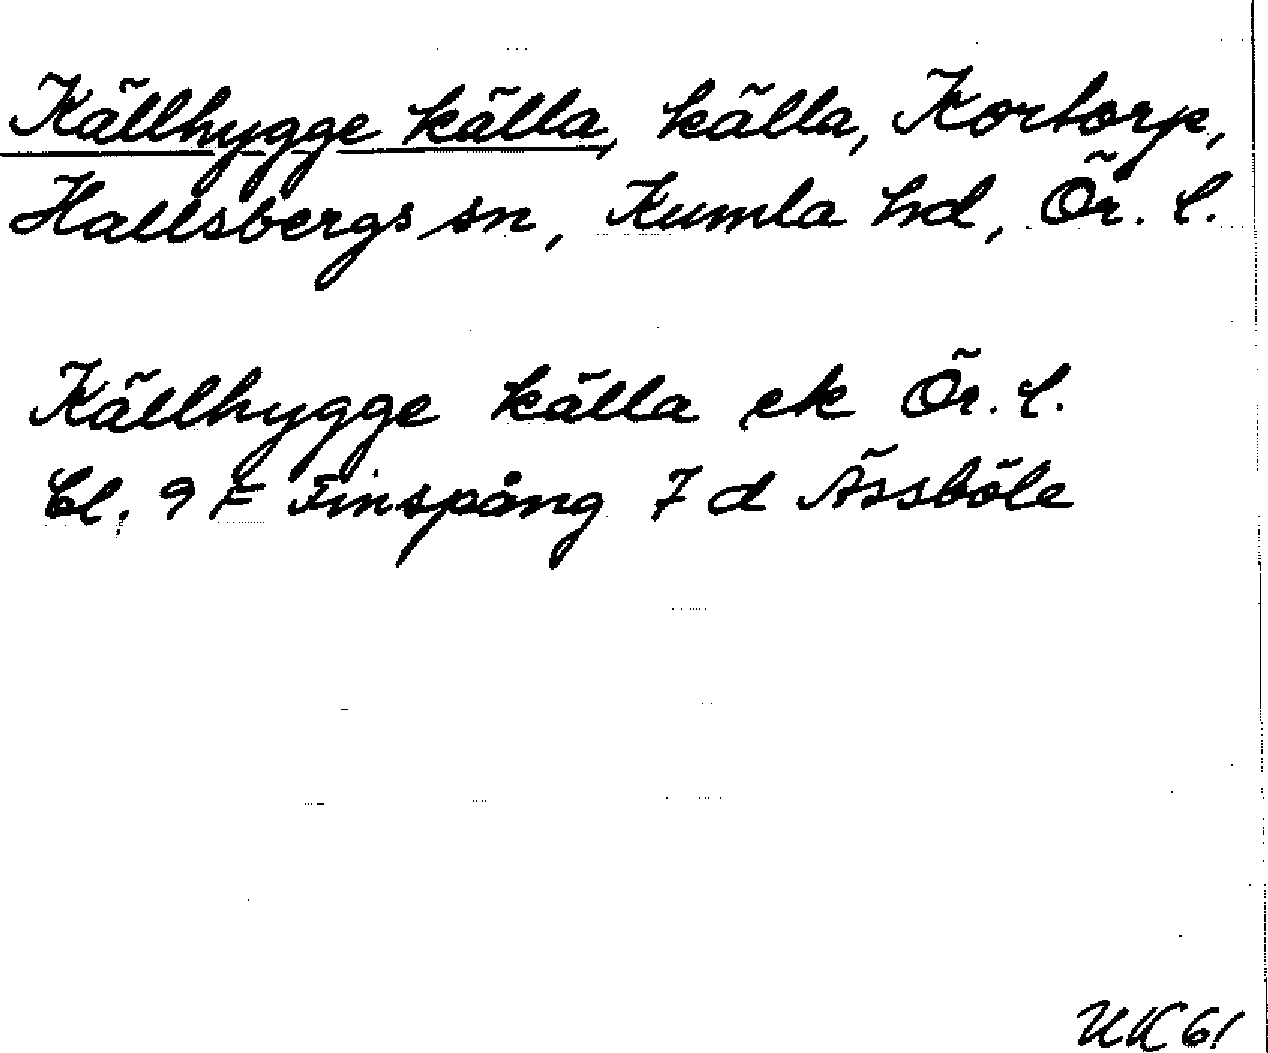 Källhygge källa, källa, Kortorp,
Hallsbergs sn, Kumla hd, Ör. l.
Källhygge källa ek Ör. l.
bl. 9 F Finspång 7 d Ässböle
UK 61